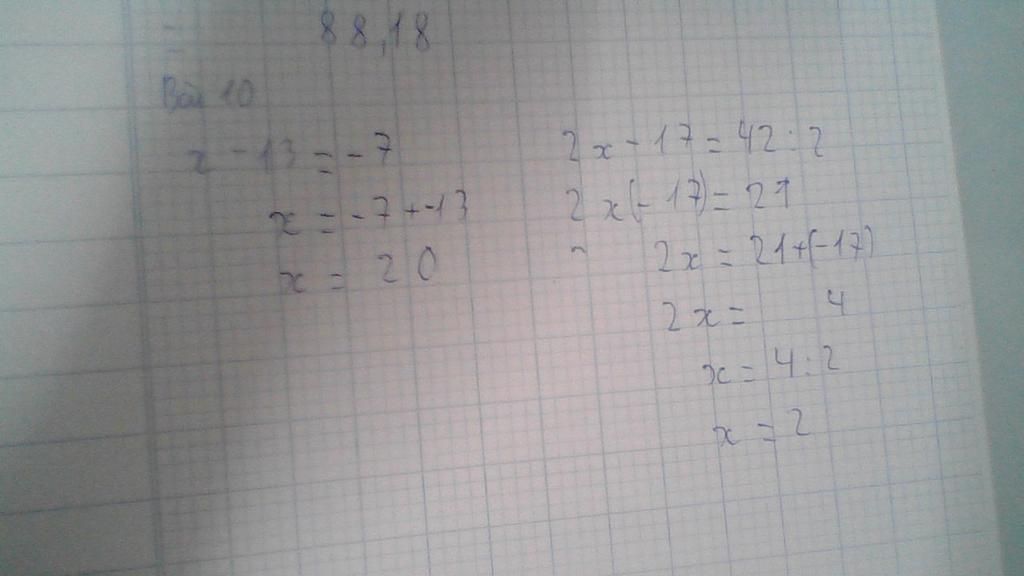 = 88,18
Bài 10
x - 13 = - 7
x = - 7 + -13
x = 20
2x - 17 = 42 : 2
2x (- 17) = 21
2x = 21 + (-17)
2x = 4
x = 4 : 2
x = 2